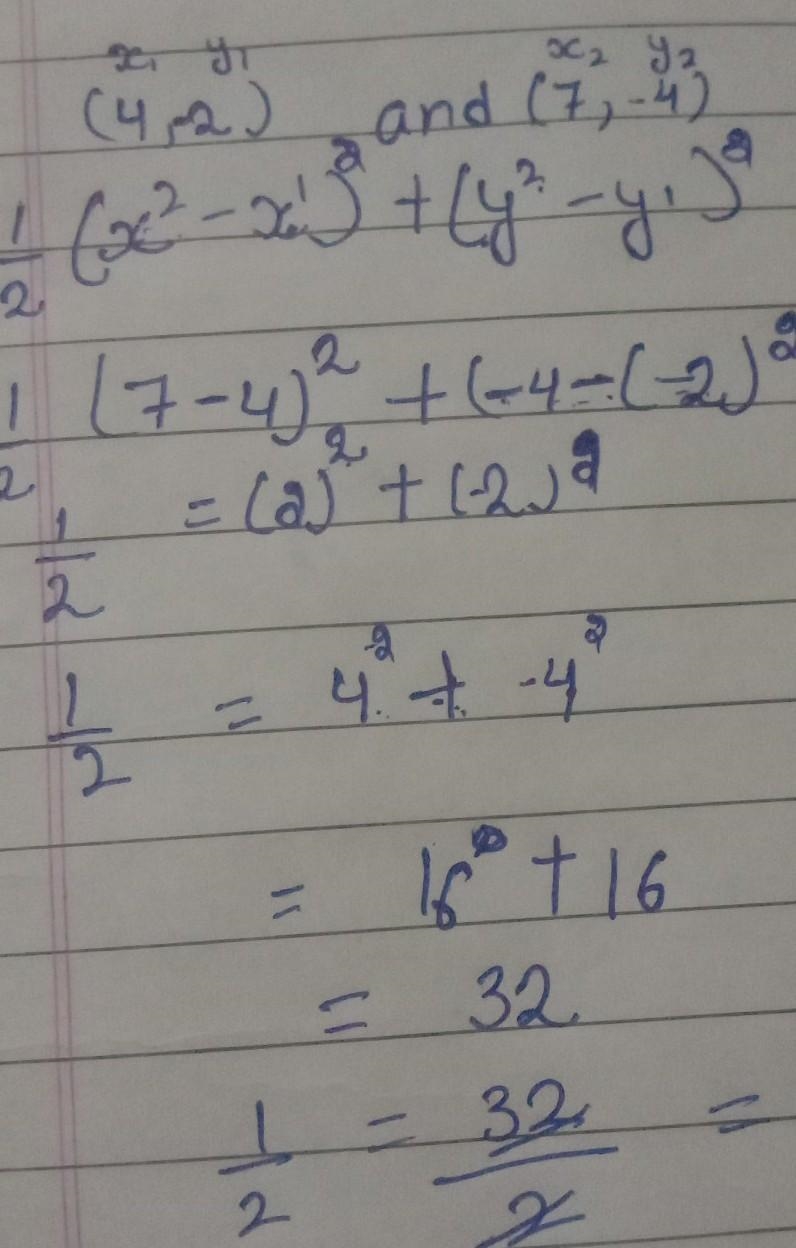 x₁ y₁ x₂ y₂
(4,-2) and (7,-4)
1/2 (x² - x¹)² + (y² - y¹)²
1/2 (7-4)² + (-4-(-2)²
1/2 = (2)² + (-2)²
1/2 = 4² + -4²
= 16 + 16
= 32
1/2 = 32/2 =